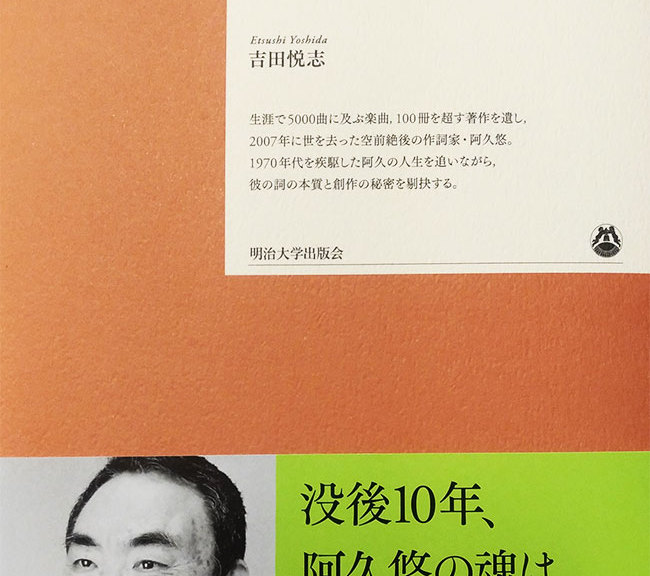 Etsushi Yoshida
吉田悦志
生涯で5000曲に及ぶ楽曲，100冊を超す著作を遺し，
2007年に世を去った空前絶後の作詞家・阿久悠。
1970年代を疾駆した阿久の人生を追いながら，
彼の詞の本質と創作の秘密を剔抉する。
明治大学出版会
没後10年、
阿久悠の魂は